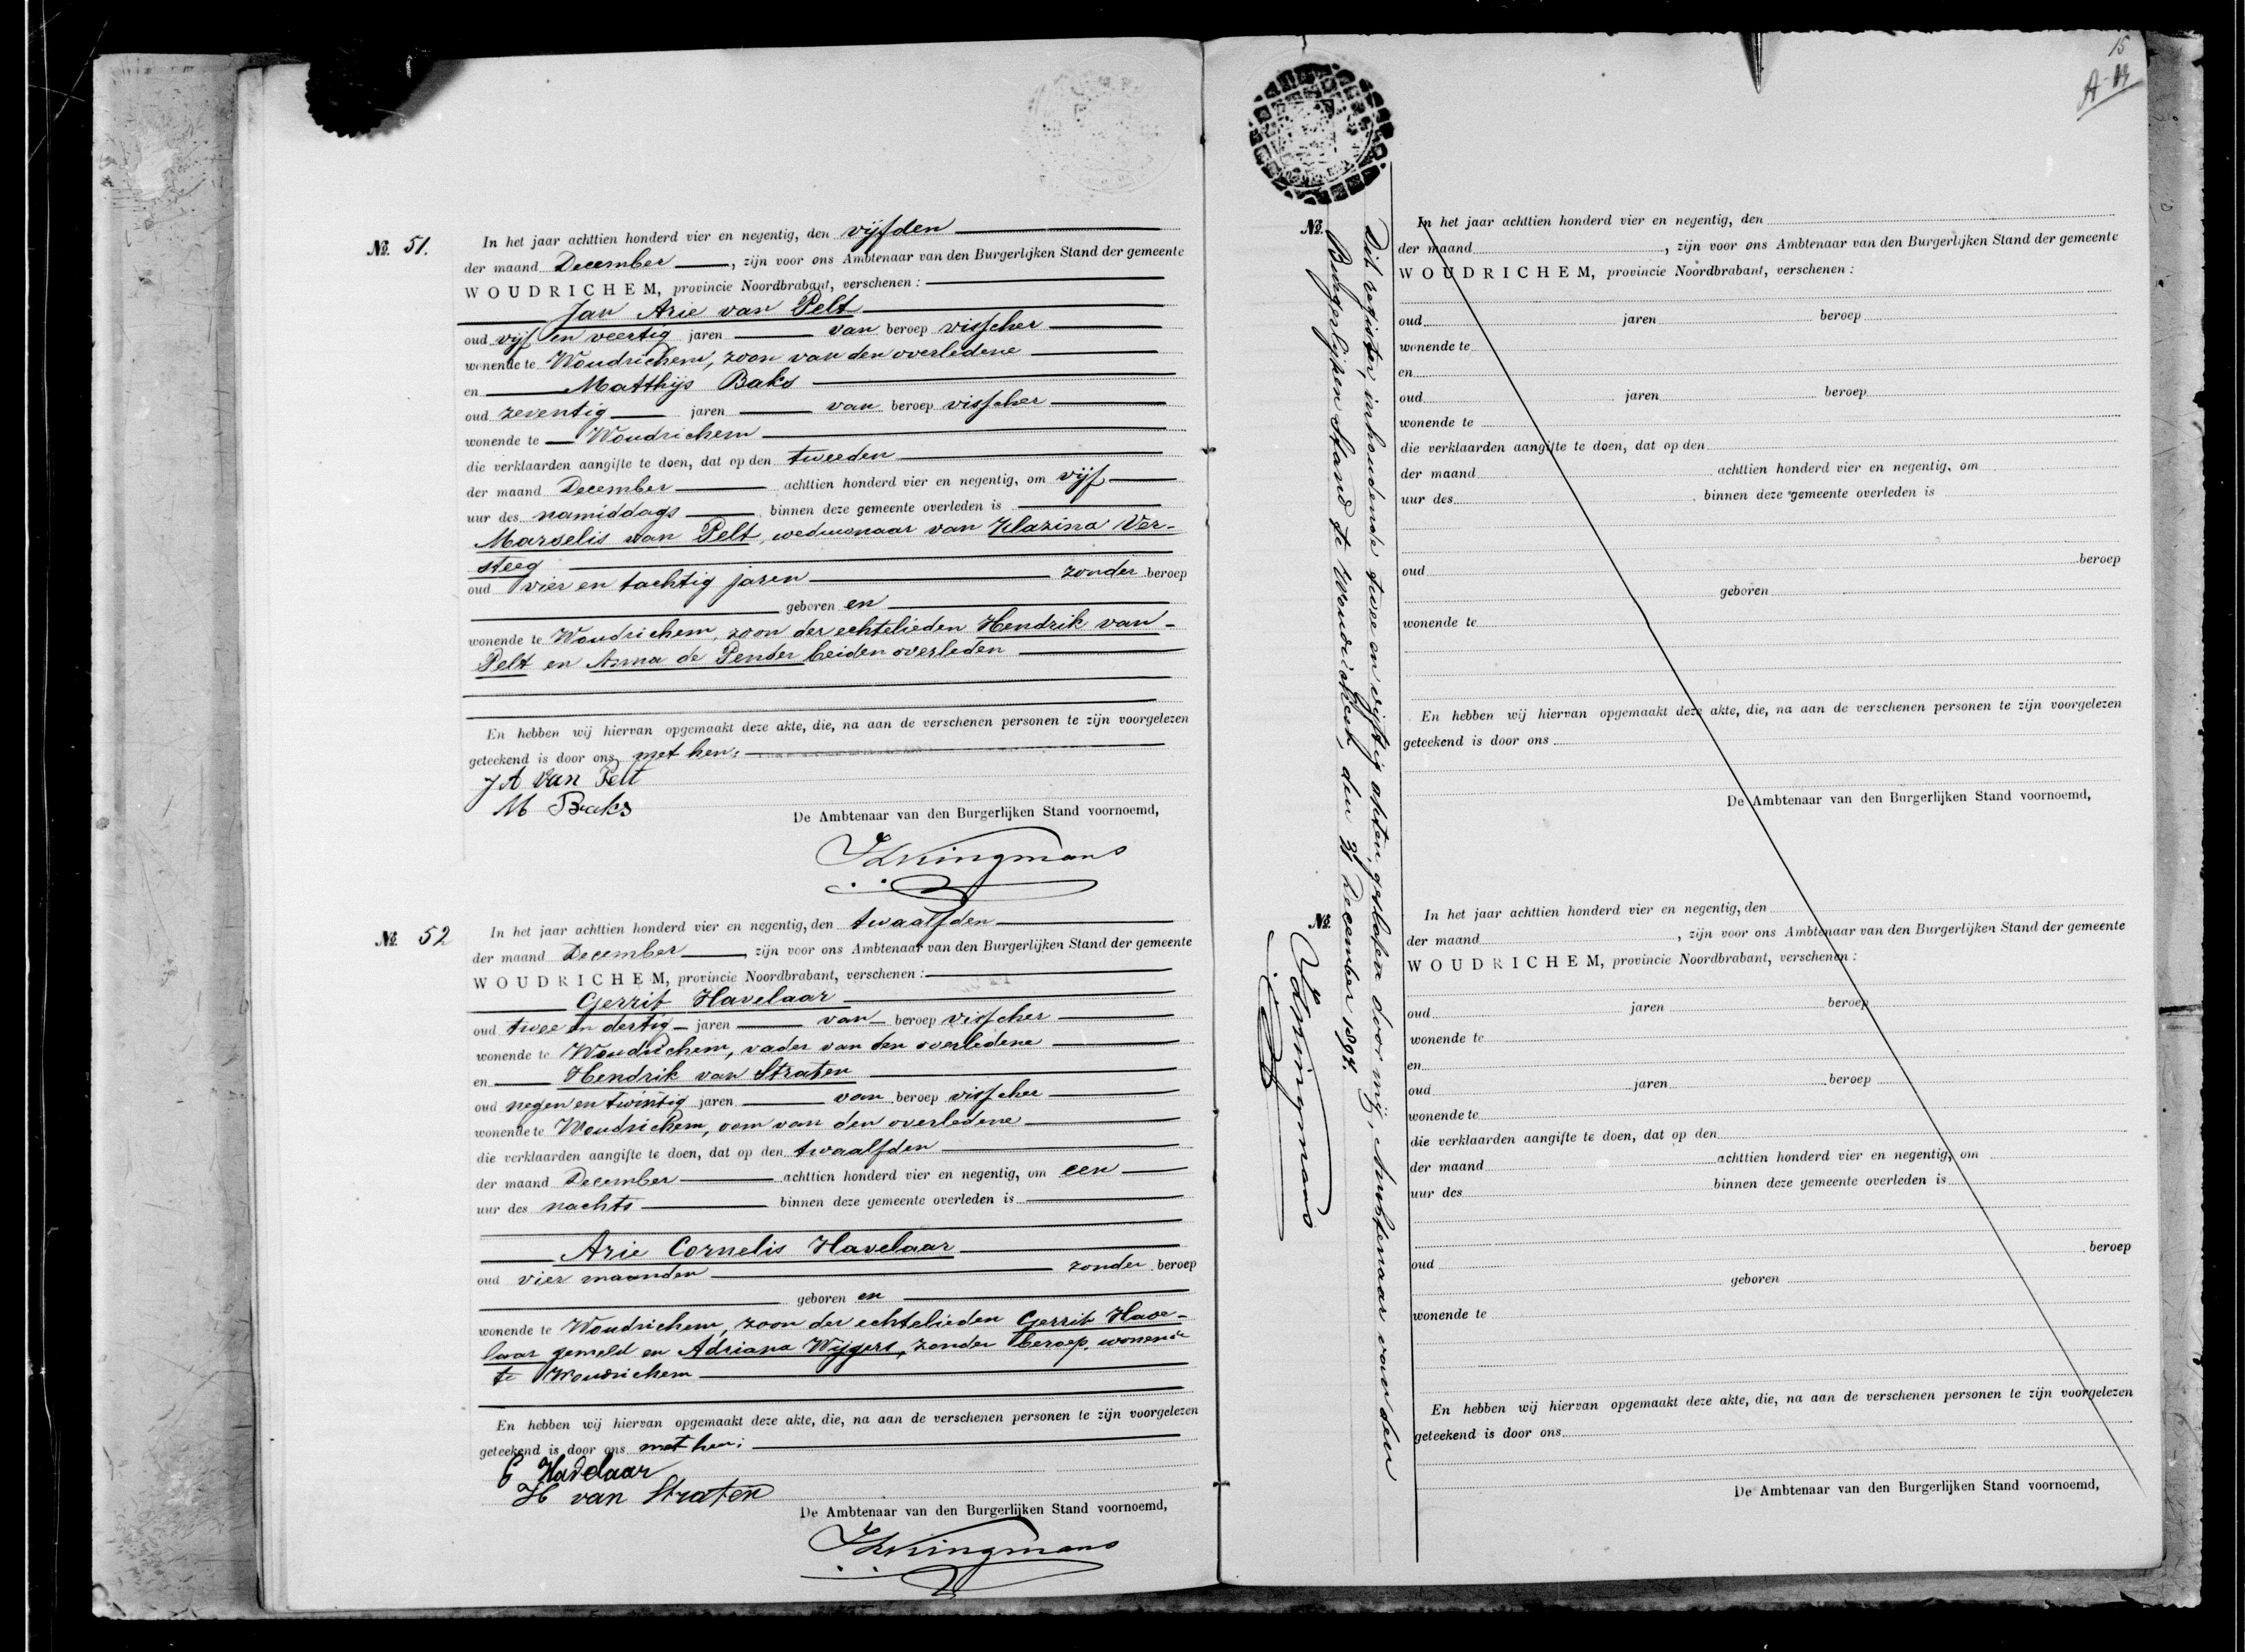 №. 51.
In het jaar achttien honderd vier en negentig, den vijfden
der maand December, zijn voor ons Ambtenaar van den Burgerlijken Stand der gemeente
WOUDRICHEM, provincie Noordbrabant, verschenen:
Jan Arie van Pelt
oud vijf en veertig jaren van beroep visscher
wonende te Woudrichem, zoon van den overledene
en Matthijs Baks
oud zeventig jaren van beroep visscher
wonende te Woudrichem
die verklaarden aangifte te doen, dat op den tweeden
der maand December achttien honderd vier en negentig, om vijf
uur des namiddags binnen deze gemeente overleden is
Marselis van Pelt, weduwnaar van Klazina Ver-
steeg
oud vier en tachtig jaren zonder beroep
geboren en
wonende te Woudrichem, zoon der echtelieden Hendrik van
Pelt en Anna de Pender beiden overleden
En hebben wij hiervan opgemaakt deze akte, die, na aan de verschenen personen te zijn voorgelezen
geteekend is door ons met hen:
J A van Pelt
M Baks
De Ambtenaar van den Burgerlijken Stand voornoemd,
№. 52
In het jaar achttien honderd vier en negentig, den twaalfden
der maand December, zijn voor ons Ambtenaar van den Burgerlijken Stand der gemeente
WOUDRICHEM, provincie Noordbrabant, verschenen:
Gerrit Havelaar
oud twee en dertig jaren van beroep visscher
wonende te Woudrichem, vader van den overledene
en Hendrik van Straten
oud negen en twintig jaren van beroep visscher
wonende te Woudrichem, oom van den overledene
die verklaarden aangifte te doen, dat op den twaalfden
der maand December achttien honderd vier en negentig, om een
uur des nachts binnen deze gemeente overleden is
Arie Cornelis Havelaar
oud vier maanden zonder beroep
geboren en
wonende te Woudrichem, zoon der echtelieden Gerrit Have-
laar gemeld en Adriana Wijgers, zonder beroep, wonende
te Woudrichem
En hebben wij hiervan opgemaakt deze akte, die, na aan de verschenen personen te zijn voorgelezen
geteekend is door ons met hen:
G Havelaar
H van Straten
De Ambtenaar van den Burgerlijken Stand voornoemd,
15
№.
Dit register, inhoudende twee en vijftig akten, gesloten door mij, Ambtenaar van den
Burgerlijken Stand te Woudrichem, den 31 December 1894.
In het jaar achttien honderd vier en negentig, den
der maand , zijn voor ons Ambtenaar van den Burgerlijken Stand der gemeente
WOUDRICHEM, provincie Noordbrabant, verschenen:
oud jaren beroep
wonende te
en
oud jaren beroep
wonende te
die verklaarden aangifte te doen, dat op den
der maand achttien honderd vier en negentig, om
uur des binnen deze gemeente overleden is
oud beroep
geboren
wonende te
En hebben wij hiervan opgemaakt deze akte, die, na aan de verschenen personen te zijn voorgelezen
geteekend is door ons
De Ambtenaar van den Burgerlijken Stand voornoemd,
№.
In het jaar achttien honderd vier en negentig, den
der maand , zijn voor ons Ambtenaar van den Burgerlijken Stand der gemeente
WOUDRICHEM, provincie Noordbrabant, verschenen:
oud jaren beroep
wonende te
en
oud jaren beroep
wonende te
die verklaarden aangifte te doen, dat op den
der maand achttien honderd vier en negentig, om
uur des binnen deze gemeente overleden is
oud beroep
geboren
wonende te
En hebben wij hiervan opgemaakt deze akte, die, na aan de verschenen personen te zijn voorgelezen
geteekend is door ons
De Ambtenaar van den Burgerlijken Stand voornoemd,